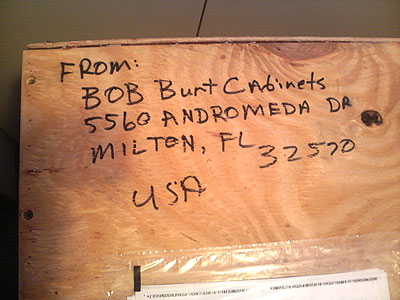 FROM:
BOB Burt Cabinets
5560 ANDROMEDA DR
MILTON, FL
32570
USA